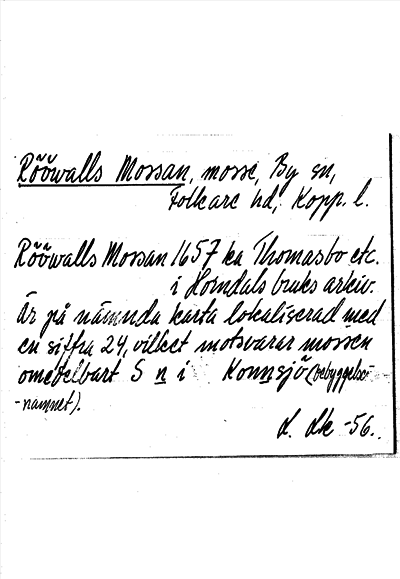 Röövalls Mossan, mosse, By sn,
Folkare hd, Kopp. l.
Röövalls Mossan 1657 ka Thomasbo etc.
i Horndals bruks arkiv.
Är på nämnda karta lokaliserad med
en siffra 24, vilket motsvarar mossen
omedelbart S n i Konnsjö (bebyggelse-
-namnet).
d. dk -56.